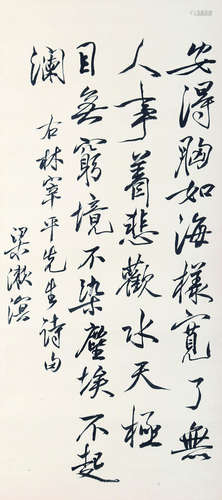 安得胸如海樣寬了無
人事着悲歡水天極
目無窮境不染塵埃不起
瀾
右林宰平先生诗句
梁漱溟